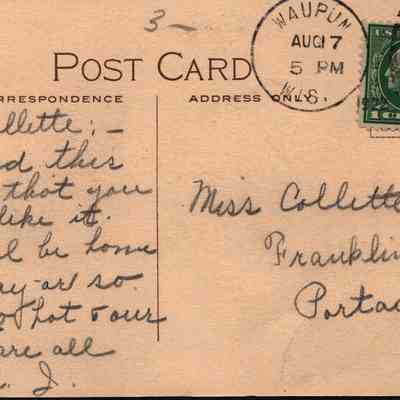 3—
WAUPUN
AUG 17
5 PM
WIS.
U.S.
POST CARD
RRESPONDENCE
ADDRESS ONLY.
llette: —
d this
that you
like it.
l be home
ay or so.
hot & our
are all
. J.
Miss Collette
Franklin
Porta